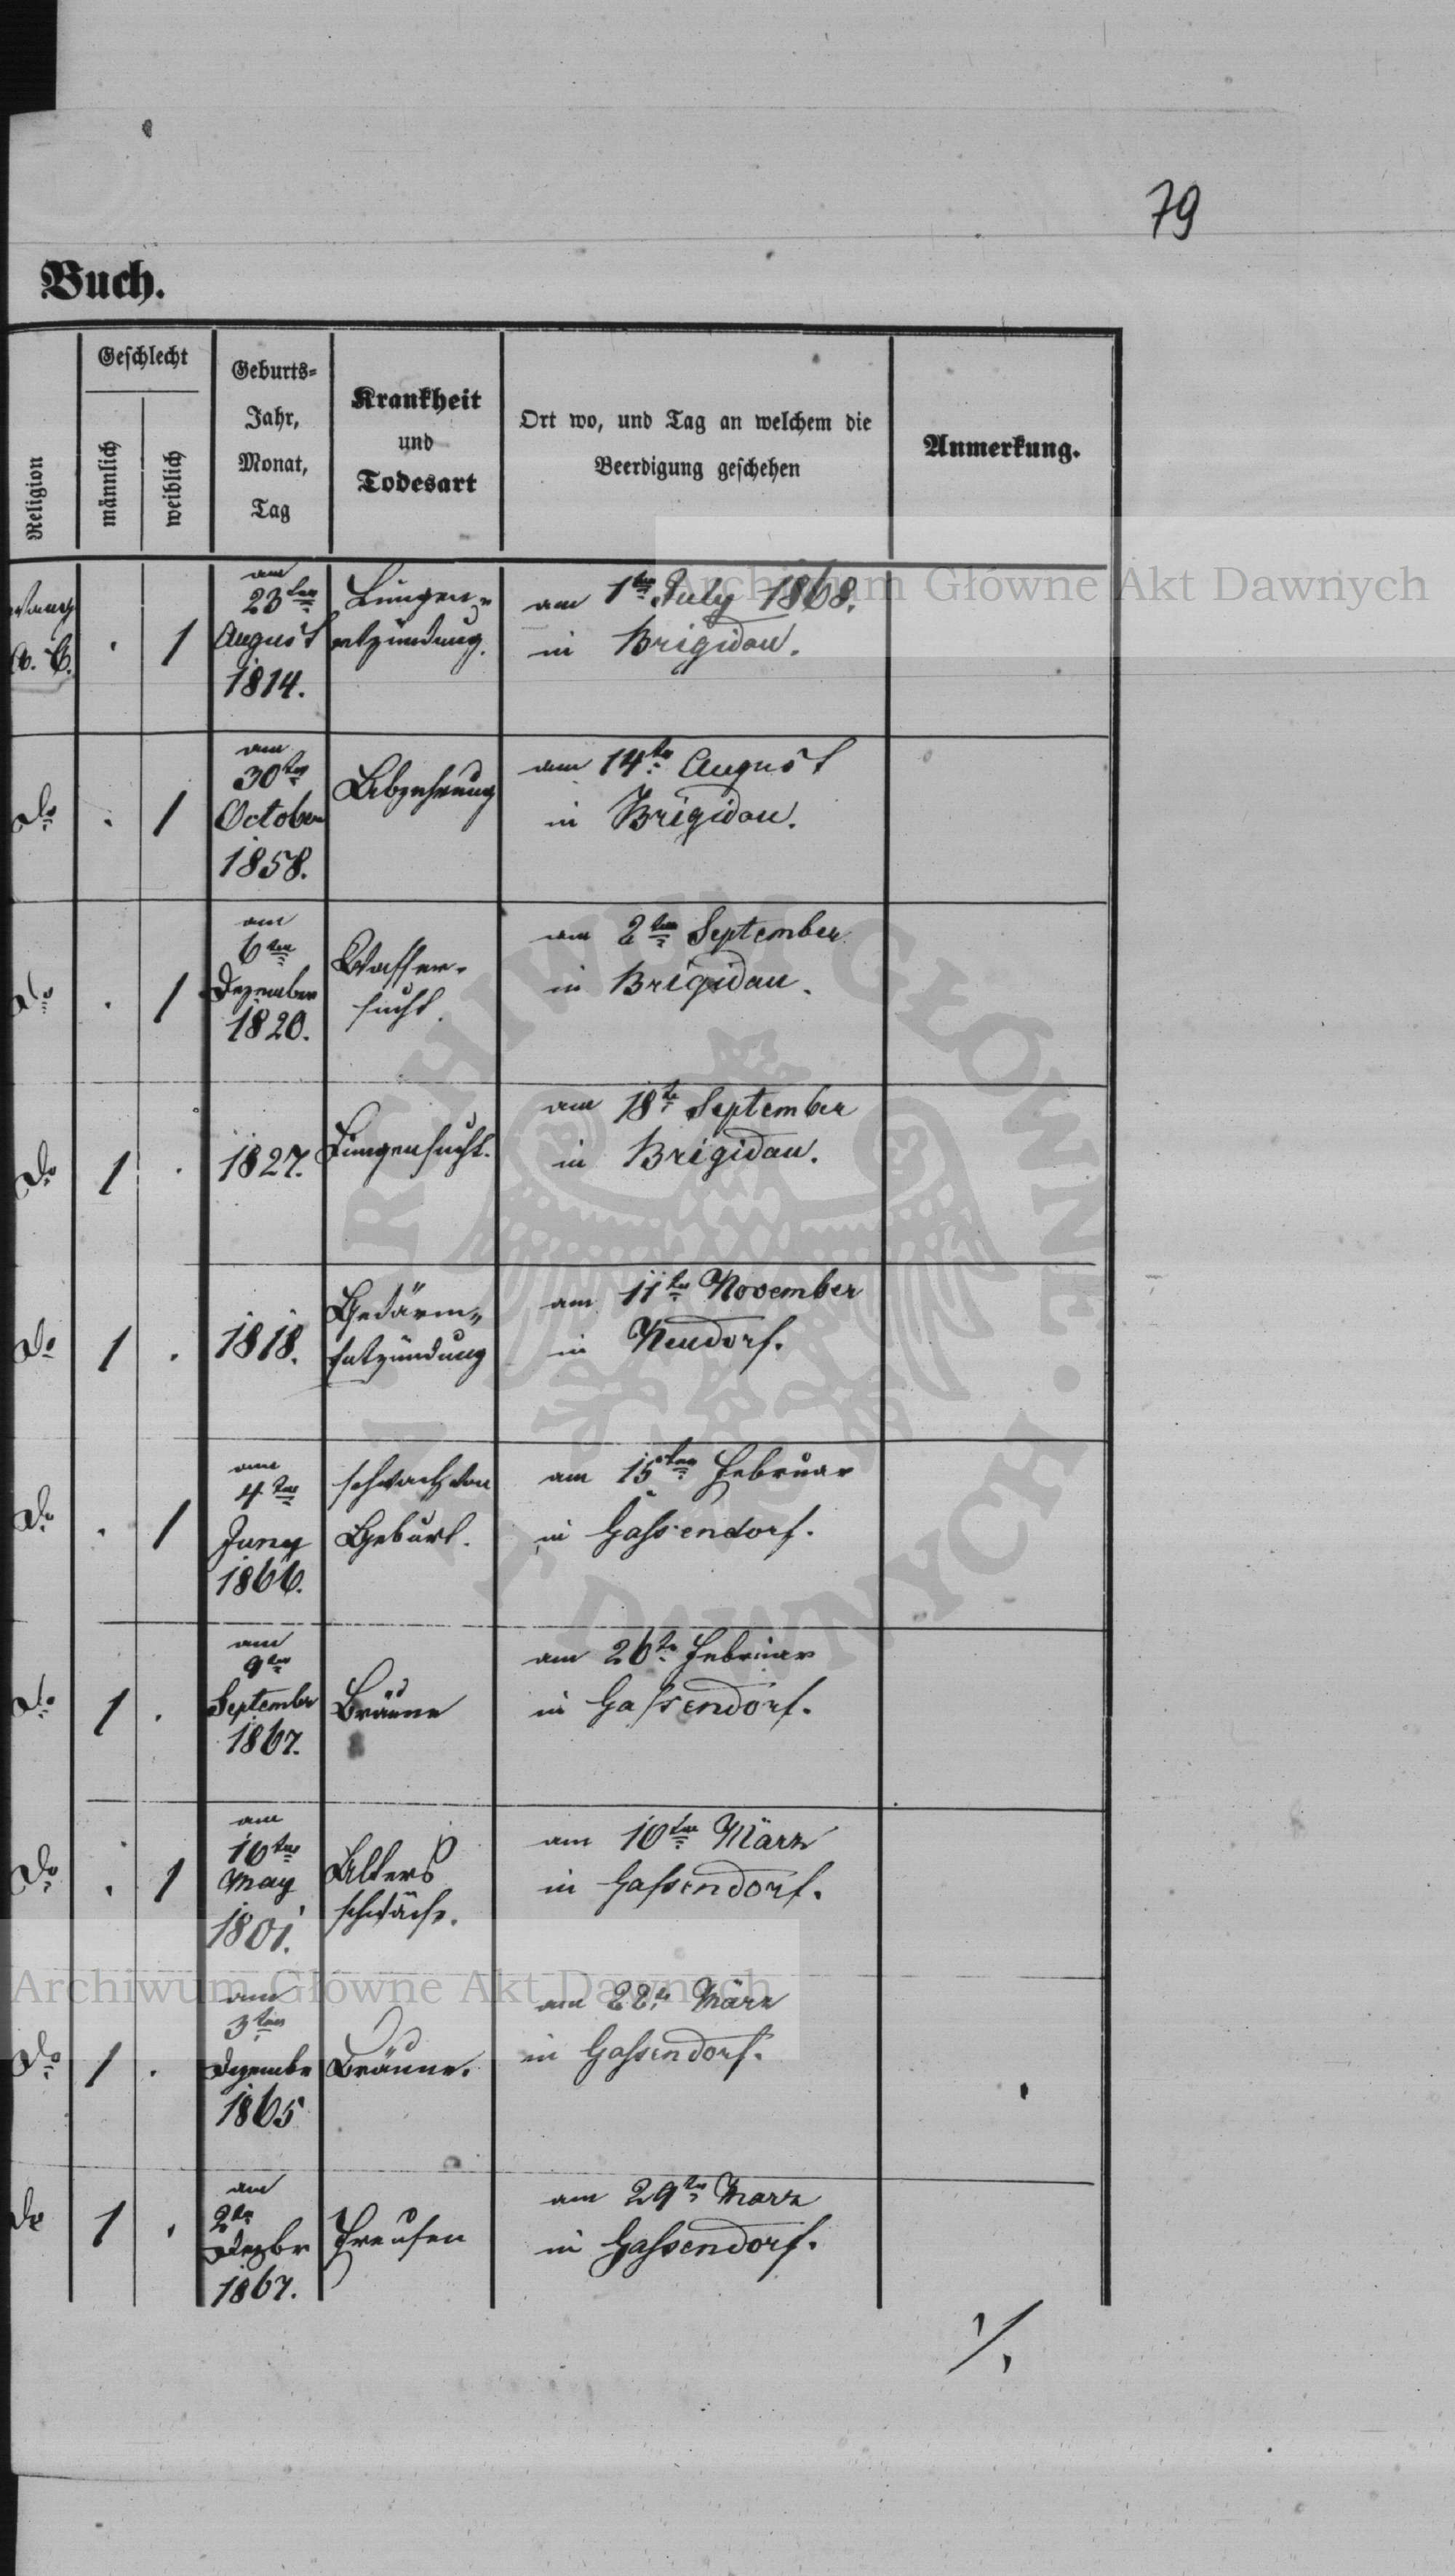 79
Buch.
Religion
Geschlecht
männlich
weiblich
Geburts-
Jahr,
Monat,
Tag
Krankheit
und
Todesart
Ort wo, und Tag an welchem die
Beerdigung geschehen
Anmerkung.
A. C.
1
am
23ten
August
1814.
Lungen-
entzündung.
am 1ten July 1868.
in Brigidau.
do
1
am
30ten
October
1858.
Abzehrung
am 14ten August
in Brigidau.
do
1
am
6ten
Dezember
1820.
Wasser-
sucht.
am 2ten September
in Brigidau.
do
1
1827.
Lungensucht.
am 18te September
in Brigidau.
do
1
1818.
Gedärm-
Entzündung
am 11ten November
in Neudorf.
do
1
am
4ten
Juny
1866.
schwach von
Geburt.
am 15ten Februar
in Gassendorf.
do
1
am
9ten
September
1867.
Bräune
am 26te Februar
in Gassendorf.
do
1
am
10ten
May
1801.
Alters
schwäche.
am 10ten März
in Gassendorf.
do
1
am
3ten
Dezembr
1865
Bräune.
am 22te März
in Gassendorf.
do
1
am
2te
Dezbr
1867.
Freusen
am 29ten März
in Gassendorf.
Archiwum Główne Akt Dawnych
Archiwum Główne Akt Dawnych
ARCHIWUM GŁÓWNE AKT DAWNYCH